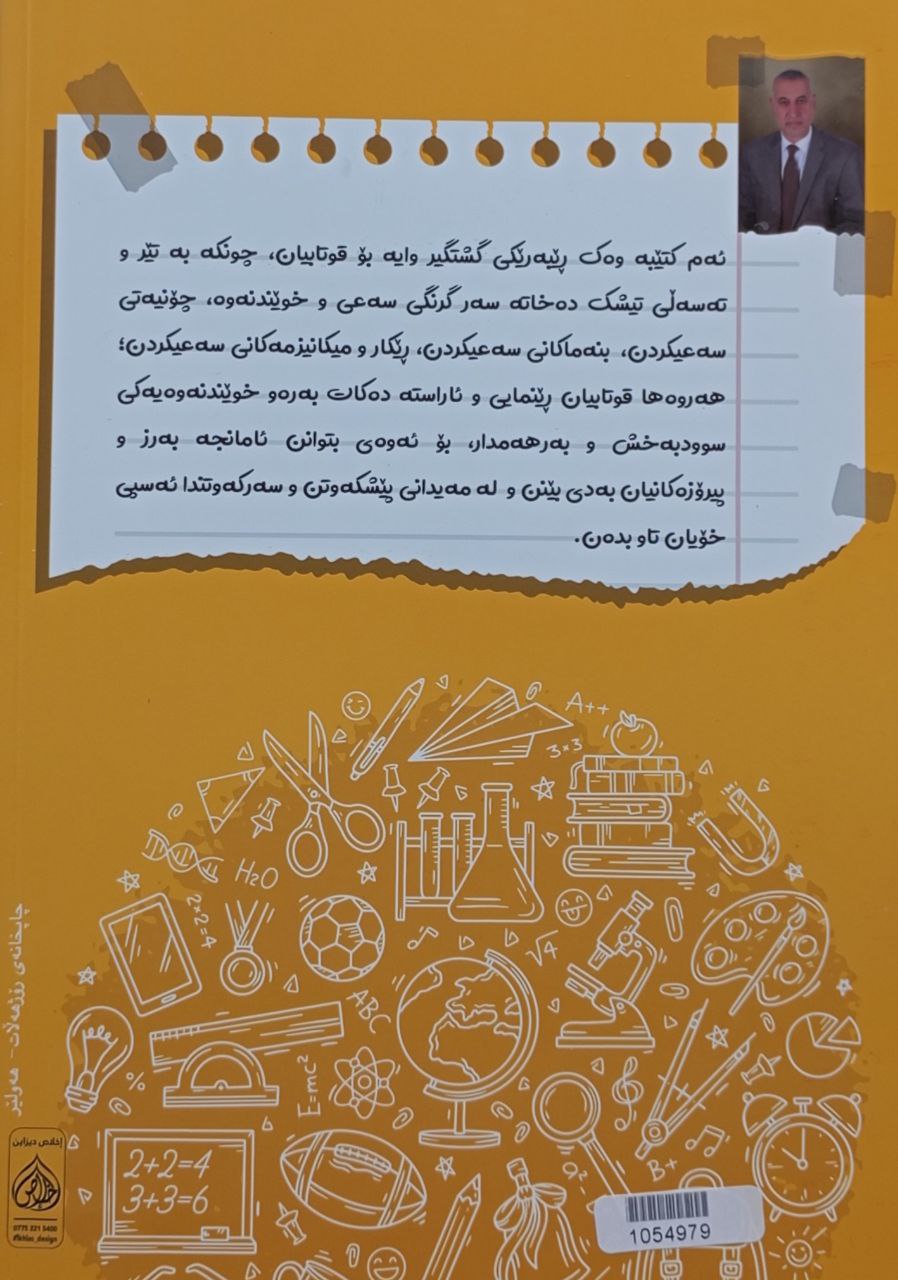 ئەم کتێبە وەک ڕێبەرێکی گشتگیر وایە بۆ قوتابیان، چونکە بە تێر و
تەسەڵی تیشک دەخاتە سەر گرنگی سەعی و خوێندنەوە، چۆنیەتی
سەعیکردن، بنەماکانی سەعیکردن، ڕێکار و میکانیزمەکانی سەعیکردن؛
هەروەها قوتابیان ڕێنمایی و ئاراستە دەکات بەرەو خوێندنەوەیەکی
سوودبەخش و بەرهەمدار، بۆ ئەوەی بتوانن ئامانجە بەرز و
پیرۆزەکانیان بەدی بێنن و لە مەیدانی پێشکەوتن و سەرکەوتندا ئەسپی
خۆیان تاو بدەن.
A++
3×3
H₂O
2×2=4
√4
ABC
E=mc²
%
2+2=4
3+3=6
B+
چاپخانەی ڕۆژهەڵات - هەولێر
إخلاص ديزاين
0775 221 5400
1054979